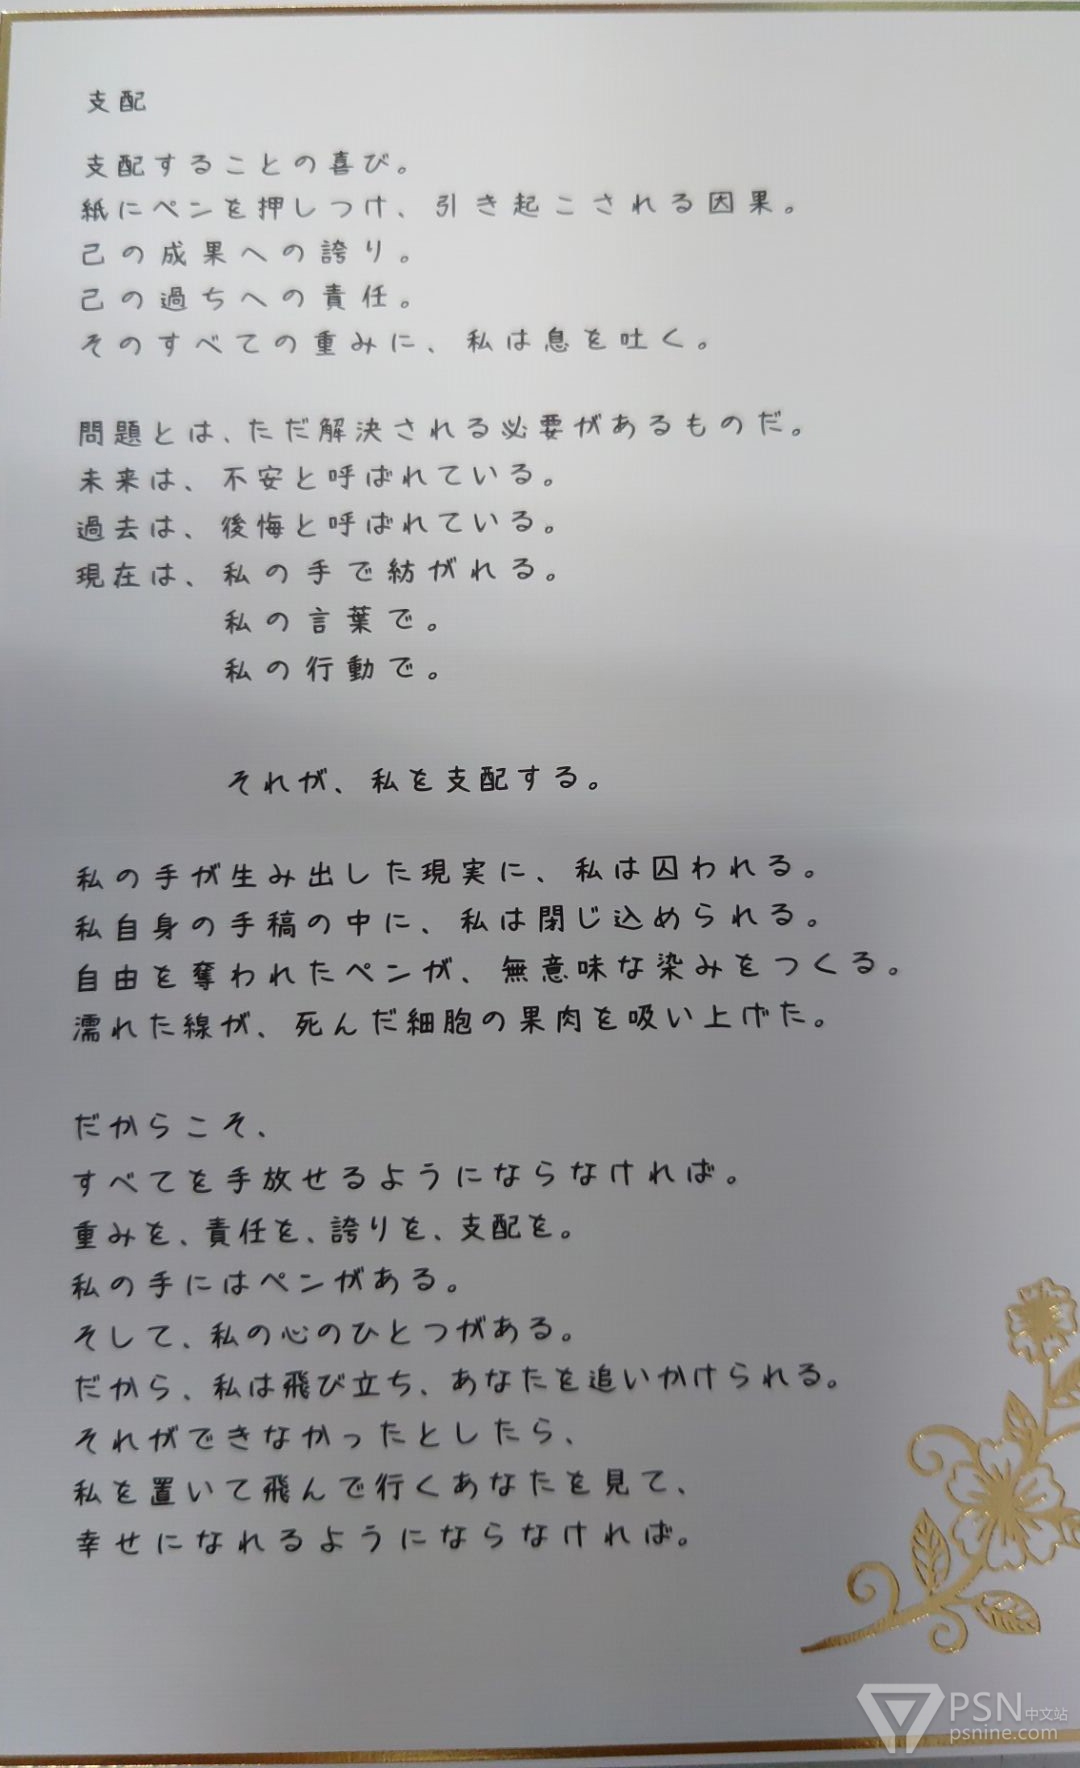 支配
支配することの喜び。
紙にペンを押しつけ、引き起こされる因果。
己の成果への誇り。
己の過ちへの責任。
そのすべての重みに、私は息を吐く。
問題とは、ただ解決される必要があるものだ。
未来は、不安と呼ばれている。
過去は、後悔と呼ばれている。
現在は、私の手で紡がれる。
私の言葉で。
私の行動で。
それが、私を支配する。
私の手が生み出した現実に、私は囚われる。
私自身の手稿の中に、私は閉じ込められる。
自由を奪われたペンが、無意味な染みをつくる。
濡れた線が、死んだ細胞の果肉を吸い上げた。
だからこそ、
すべてを手放せるようにならなければ。
重みを、責任を、誇りを、支配を。
私の手にはペンがある。
そして、私の心のひとつがある。
だから、私は飛び立ち、あなたを追いかけられる。
それができなかったとしたら、
私を置いて飛んで行くあなたを見て、
幸せになれるようにならなければ。
PSN中文站
psnine.com